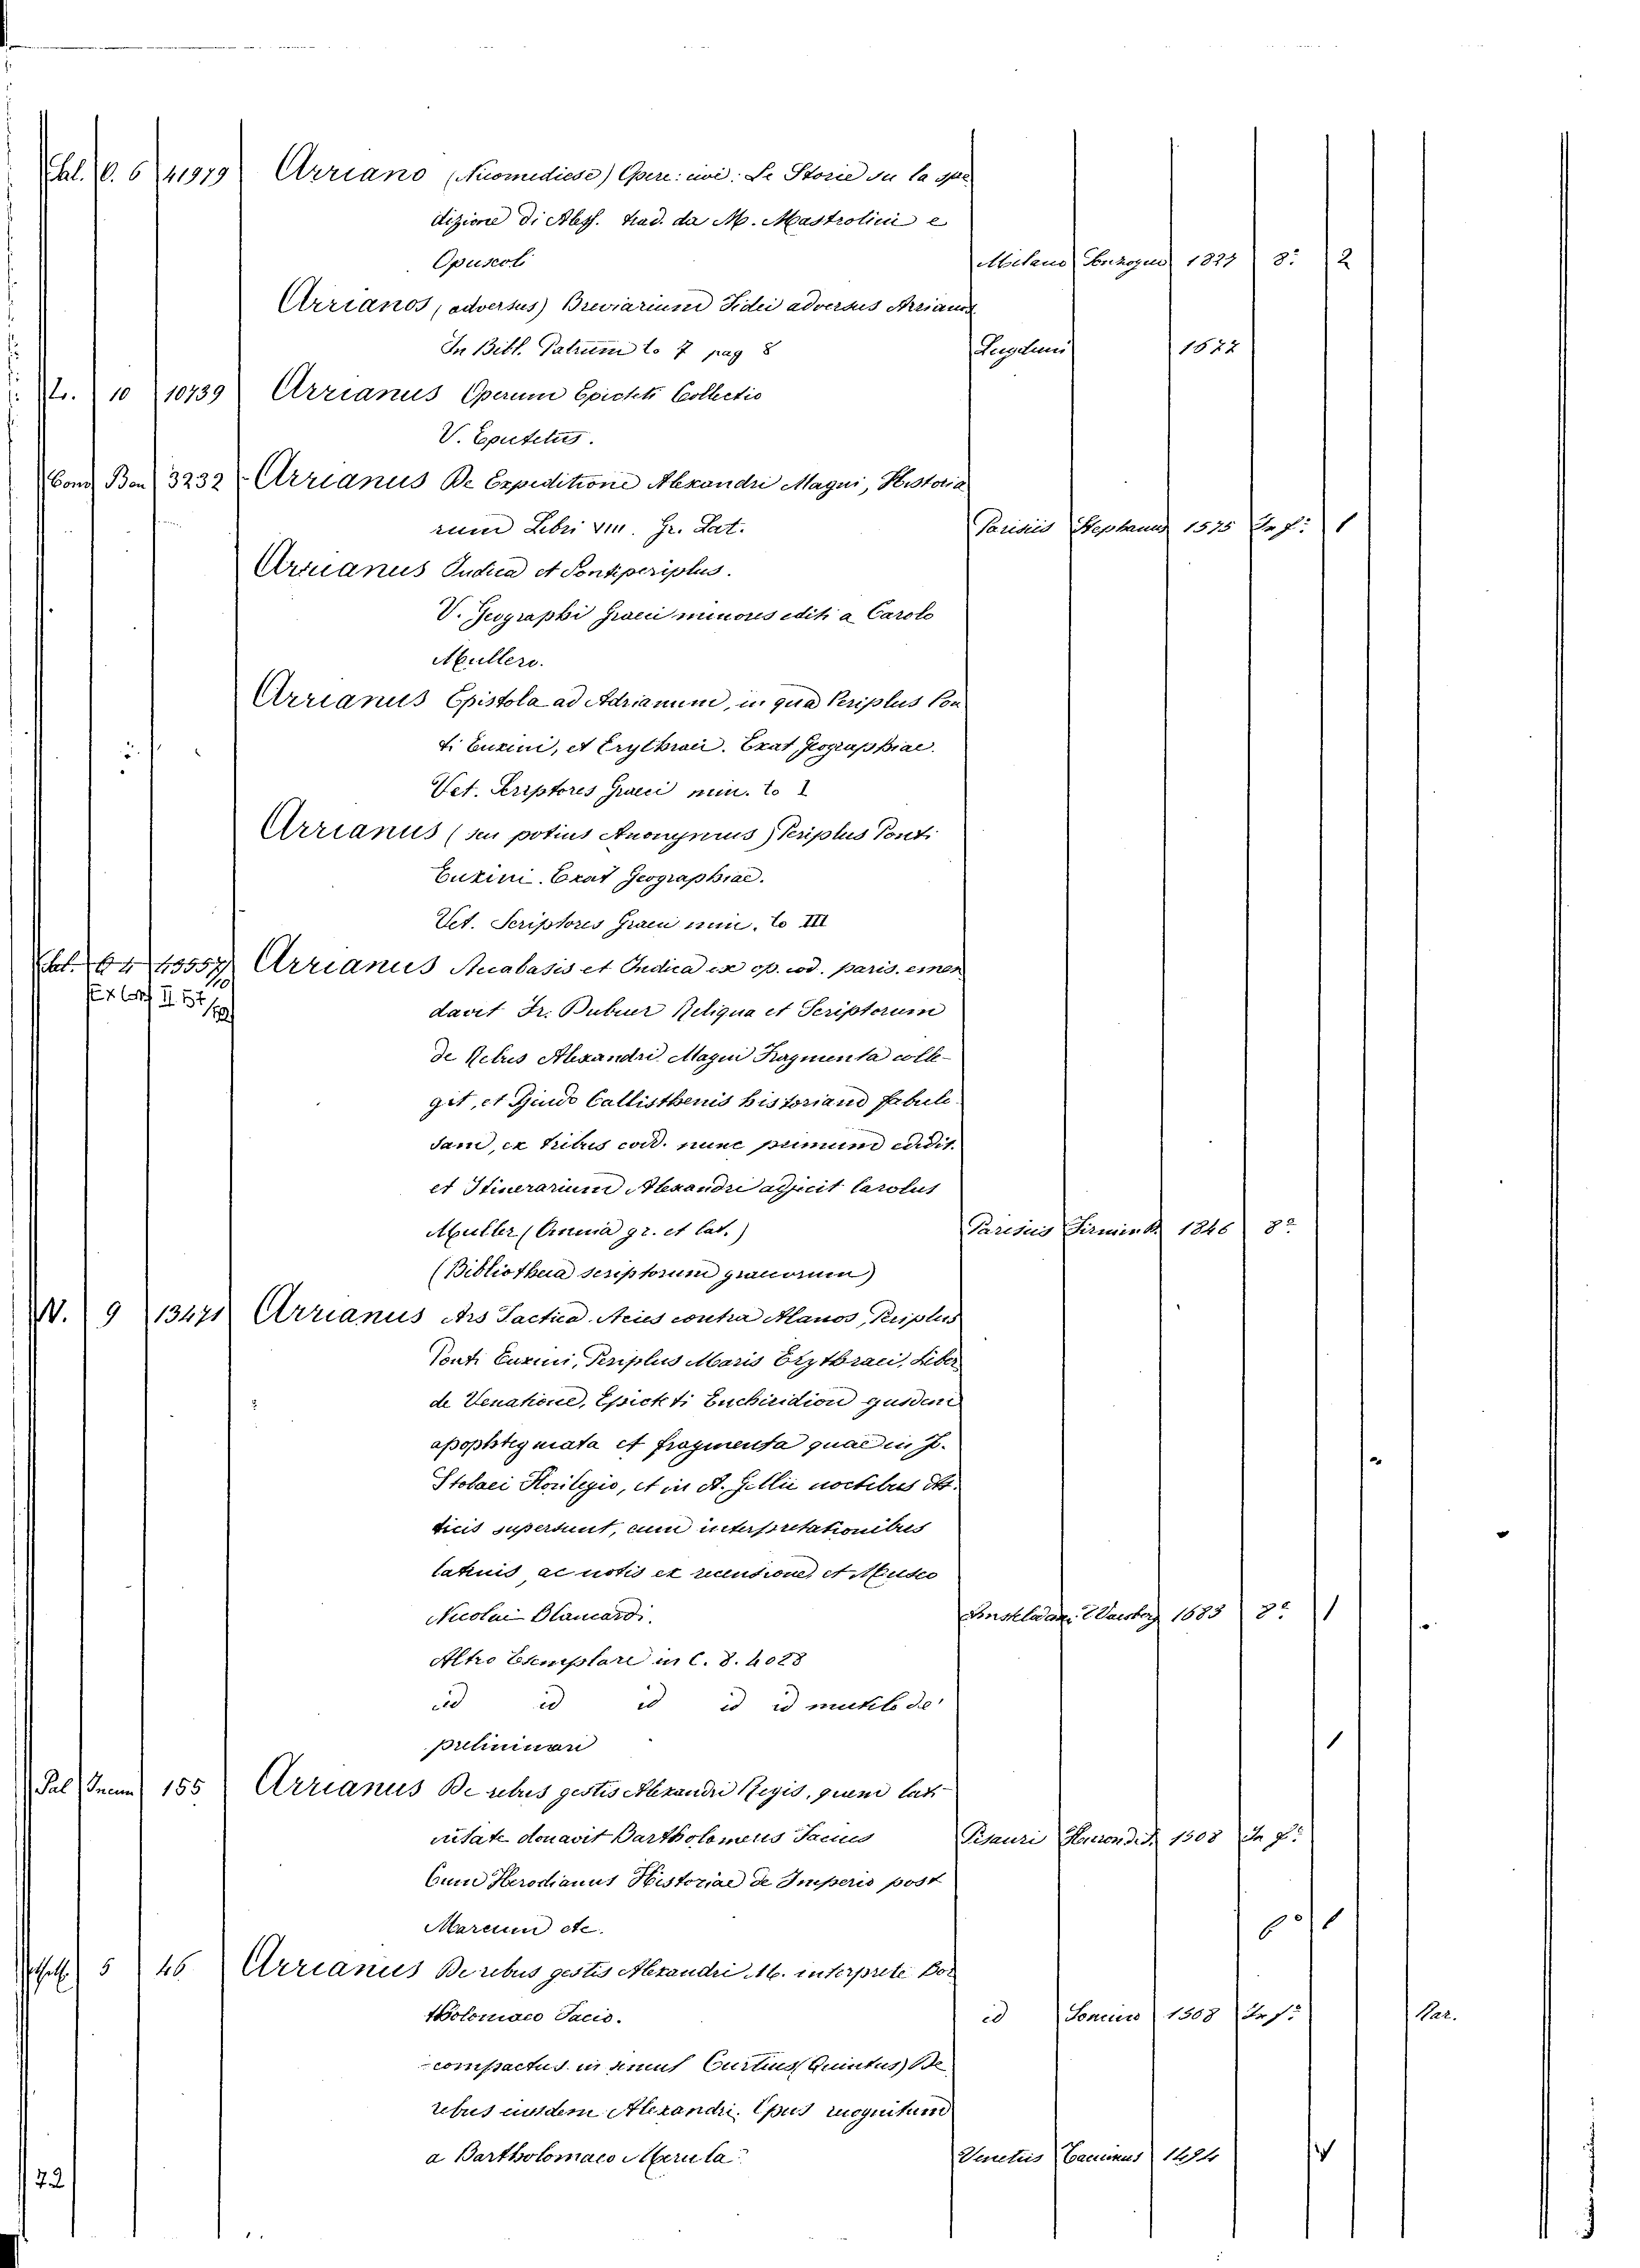 6. 6 41979 Arriano (Nicomediese) Opere: cioè: Le Storie su la spe
dizione di Aless. trad. da M. Mastrolini e
Opuscoli Milano Sonzogno 1827 8.º 2
Arrianos, adversus) Breviarium Fidei adversus Arrianos
In Bibl. Patrum to 7 pag 8 Lugduni 1622
10 10739 Arrianus Operum Epicteti Collectio
V. Epictetus.
Ben 3232 Arrianus De Expeditione Alexandri Magni, Historia
rum Libri VIII. Gr. Lat. Parisiis Stephanus 1575 In f.º 1
Arrianus Indica et Ponti periplus.
V. Geographi Graeci minores editi a Carolo
Mullero.
Arrianus Epistola ad Adrianum, in qua Periplus Pon
ti Euxini, et Erythraei. Exat Geographiae.
Vet. Scriptores Graeci min. to I
Arrianus (seu potius Anonymus) Periplus Ponti
Euxini. Exat Geographiae.
Vet. Scriptores Graeci min. to III
Arrianus Anabasis et Indica ex op. cod. paris. emen
davit Fr. Dubner Reliqua et Scriptorum
de Rebus Alexandri Magni Fragmenta colle-
git, et Pseudo Callisthenis historiam fabulo
sam, ex tribus cod. nunc primum edidit
et Itinerarium Alexandri adjecit Carolus
Muller (Omnia gr. et lat.) Parisiis Firmin D. 1846 8.º
(Bibliotheca scriptorum graecorum)
V. 9 13471 Arrianus Ars Tactica. Acies contra Alanos, Periplus
Ponti Euxini, Periplus Maris Erythraei, Liber
de Venatione, Epicteti Enchiridion ejusdem
apophtegmata et fragmenta quae in J.
Stobaei Florilegio, et in A. Gellii noctibus At
ticis supersunt, cum interpretationibus
latinis ac notis ex recensione et Museo
Nicolai Blancardi. Amstelodami 1683 8.º 1
Altro Esemplare in C. 8. 4028
id id id id id mutilo dei
preliminari 1
Pal Incun 155 Arrianus De rebus gestis Alexandri Regis, quem lati
nitate donavit Bartholomeus Facius Pisauri 1508 In f.º
Cum Herodianus Historiae de Imperio post
Marcum etc.
5 46 Arrianus De rebus gestis Alexandri M. interprete Bar
tholomaeo Facio. id Soncino 1508 In f.º Rar.
compactus in simul Curtius Quintus) De
rebus eiusdem Alexandri. Opus recognitum
a Bartholomaeo Merula Venetiis 1494
72